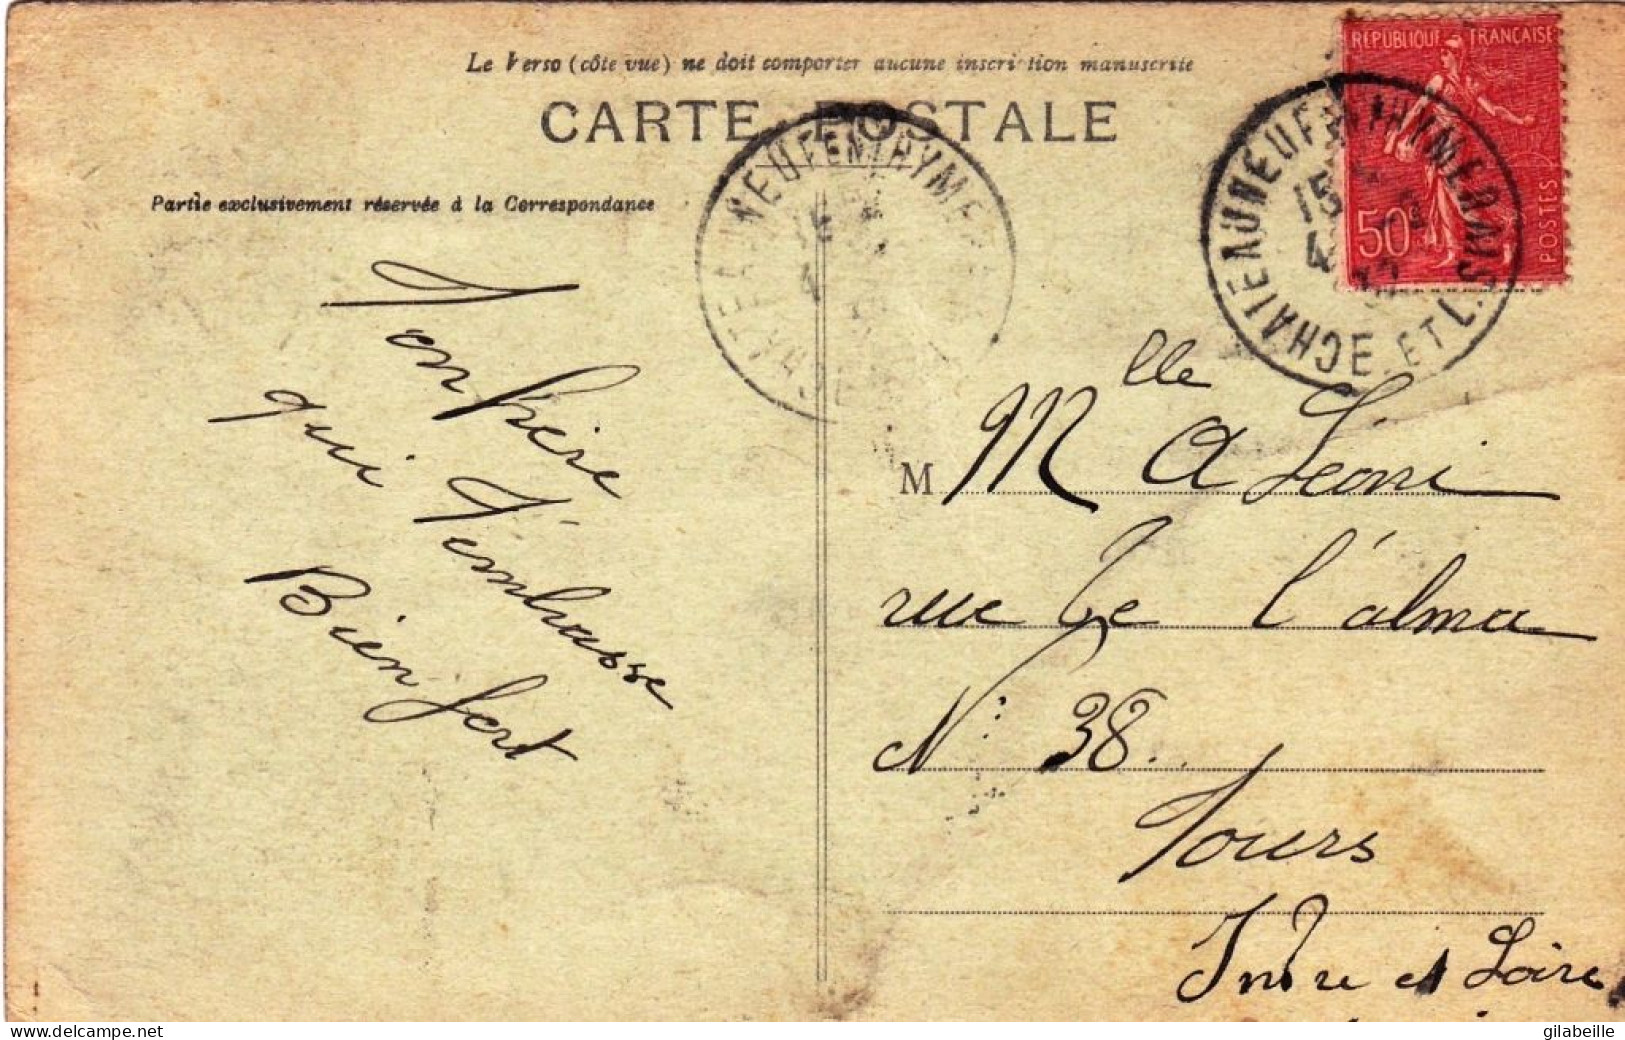 Le Verso (côte vue) ne doit comporter aucune inscription manuscrite
CARTE POSTALE
Partie exclusivement réservée à la Correspondance
REPUBLIQUE FRANÇAISE
50c
POSTES
CHATEAUNEUF EN THYMERAIS
15
4
E. ET L.
CHATEAUNEUF EN THYME
15
4
Ton frère
qui t'embrasse
Bien fort
M Mlle A Leoni
rue de l'alma
N° 38.
Tours
Indre et Loire
www.delcampe.net
gilabeille